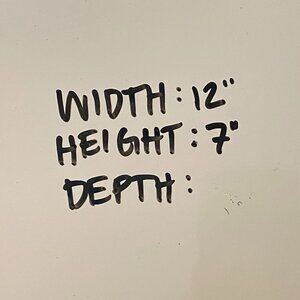 WIDTH: 12"
HEIGHT: 7"
DEPTH: